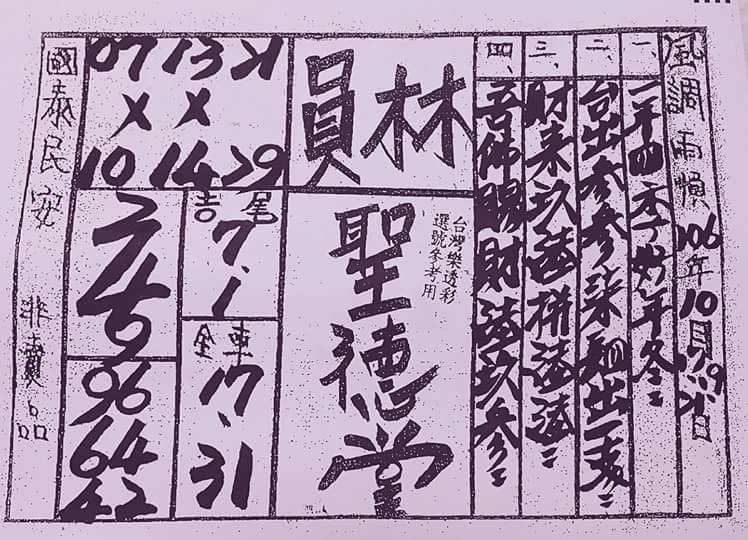 風調雨順 106年10月
一、一年四季好年冬
二、台出參參柒翻出一支
三、財來玖法拼法法
四、吾佛賜財法玖參
員林
聖德堂
台灣樂透彩
選號參考用
07 13 21
x x
10 14 29
吉尾
7、1
全車
17、31
96
64
42
國泰民安 非賣品